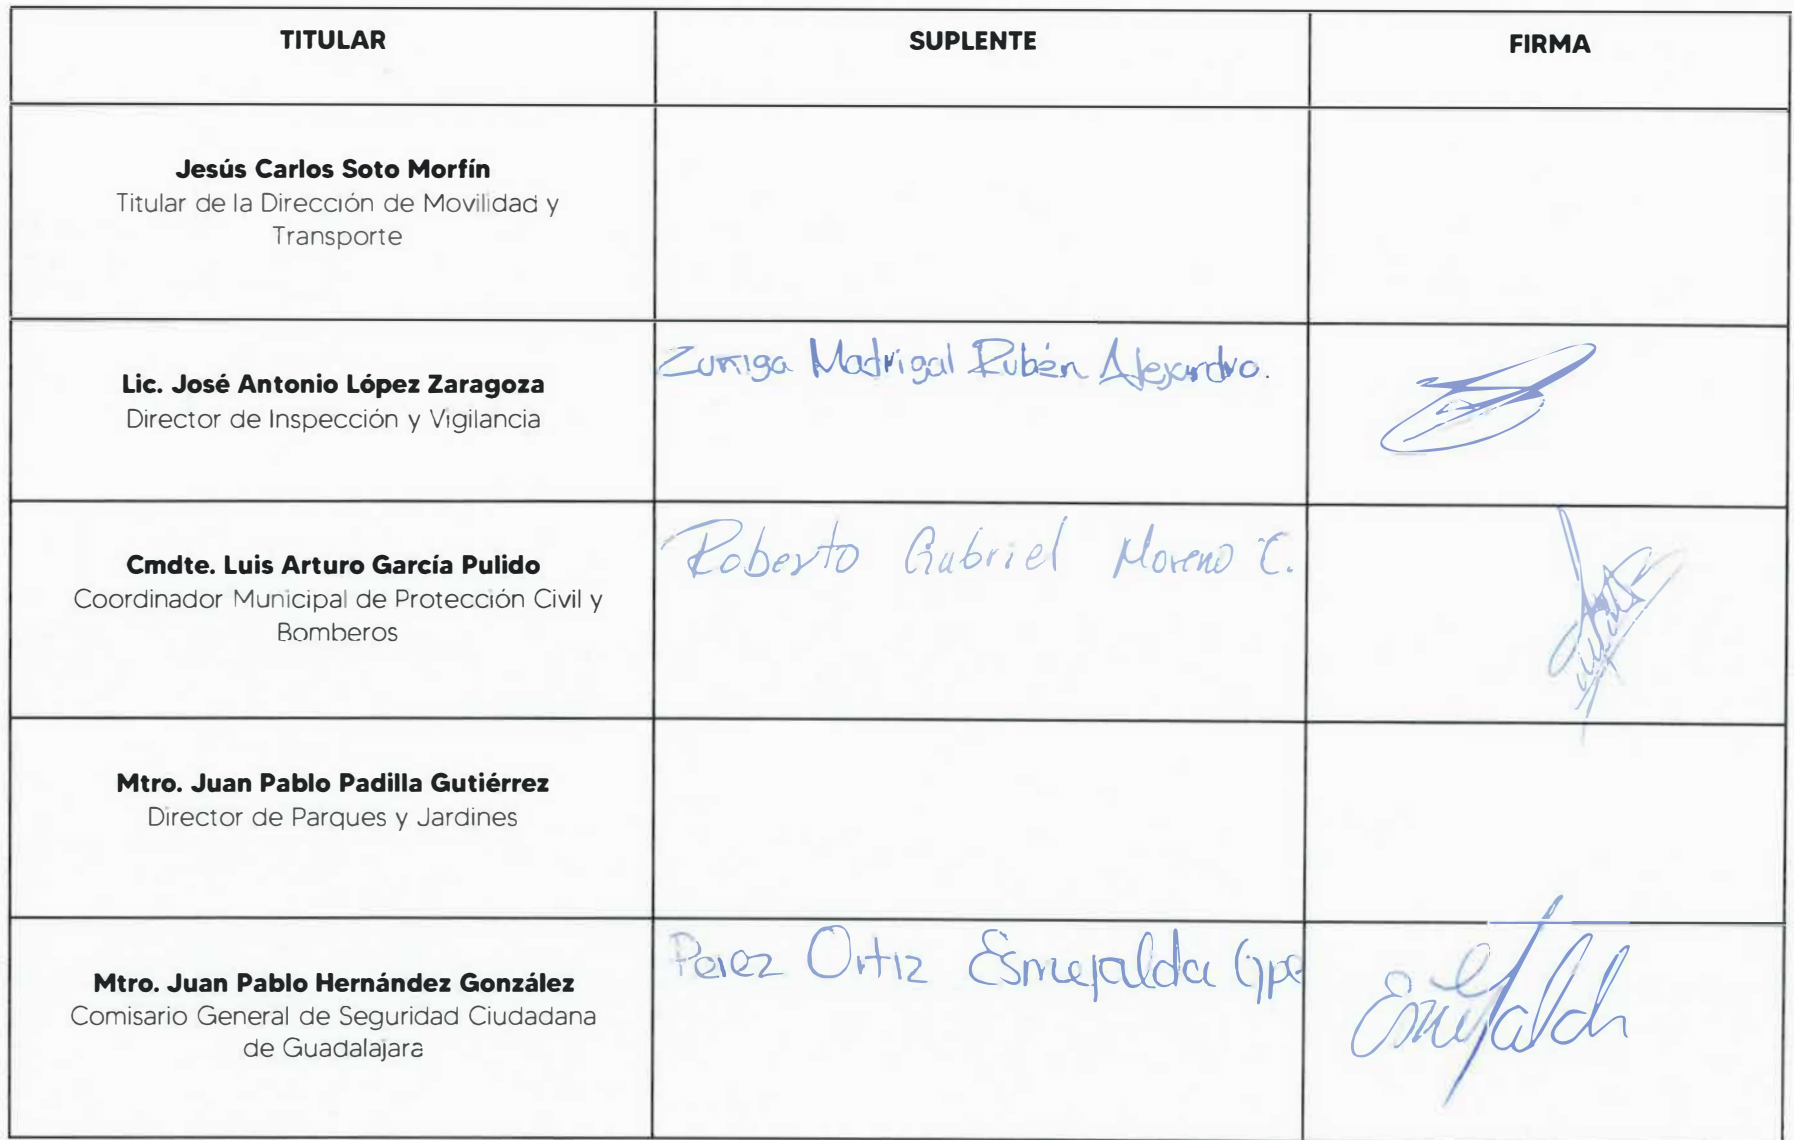 TITULAR SUPLENTE FIRMA
Jesús Carlos Soto Morfín
Titular de la Dirección de Movilidad y
Transporte
Lic. José Antonio López Zaragoza
Director de Inspección y Vigilancia
Zuñiga Madrigal Rubén Alejandro.
Cmdte. Luis Arturo García Pulido
Coordinador Municipal de Protección Civil y
Bomberos
Roberto Gabriel Moreno C.
Mtro. Juan Pablo Padilla Gutiérrez
Director de Parques y Jardines
Mtro. Juan Pablo Hernández González
Comisario General de Seguridad Ciudadana
de Guadalajara
Perez Ortiz Esmeralda Gpe
Esmeralda